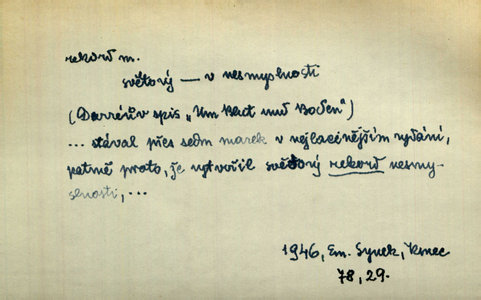 rekord m.
světový — v nesmyslnosti
(Darréův spis „Um Blut und Boden“)
... stával přes sedm marek v nejlacinějším vydání,
patrně proto, že vytvořil světový rekord nesmy-
slnosti, ...
1946, Em. Synek,
78, 29.